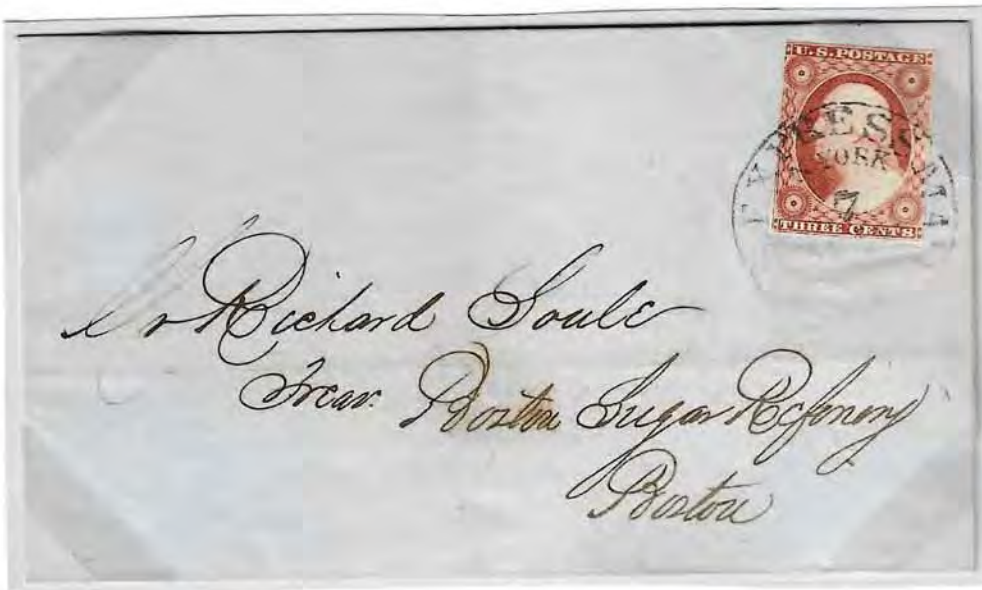 U.S. POSTAGE
EXPRESS MAI
YORK
7
THREE CENTS
Mr Richard Soule
Treas. Boston Sugar Refining
Boston